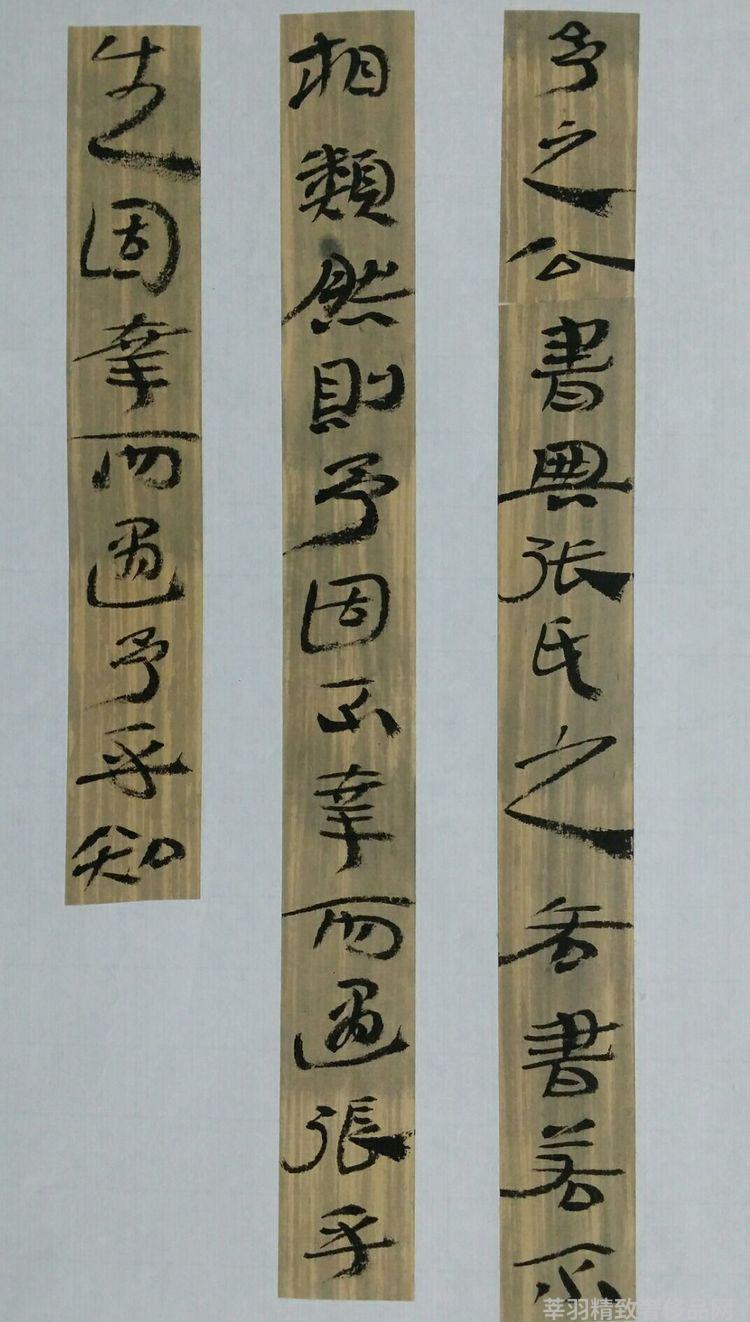 予之公書與張氏之吝書若不
相類然則予固不幸而遇張乎
生固幸而遇予乎知
莘羽精致奢侈品网